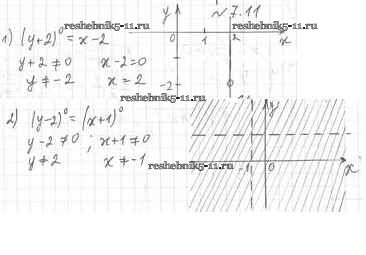 № 7.11
reshebnik5-11.ru reshebnik5-11.ru
1) (y+2)⁰ = x-2
y+2 ≠ 0 x-2=0
y ≠ -2 x = 2
y
0 1 2 x
-2
reshebnik5-11.ru
2) (y-2)⁰ = (x+1)⁰
y-2 ≠ 0 ; x+1 ≠ 0
y ≠ 2 x ≠ -1
y
reshebnik5-11.ru
-1 0 x